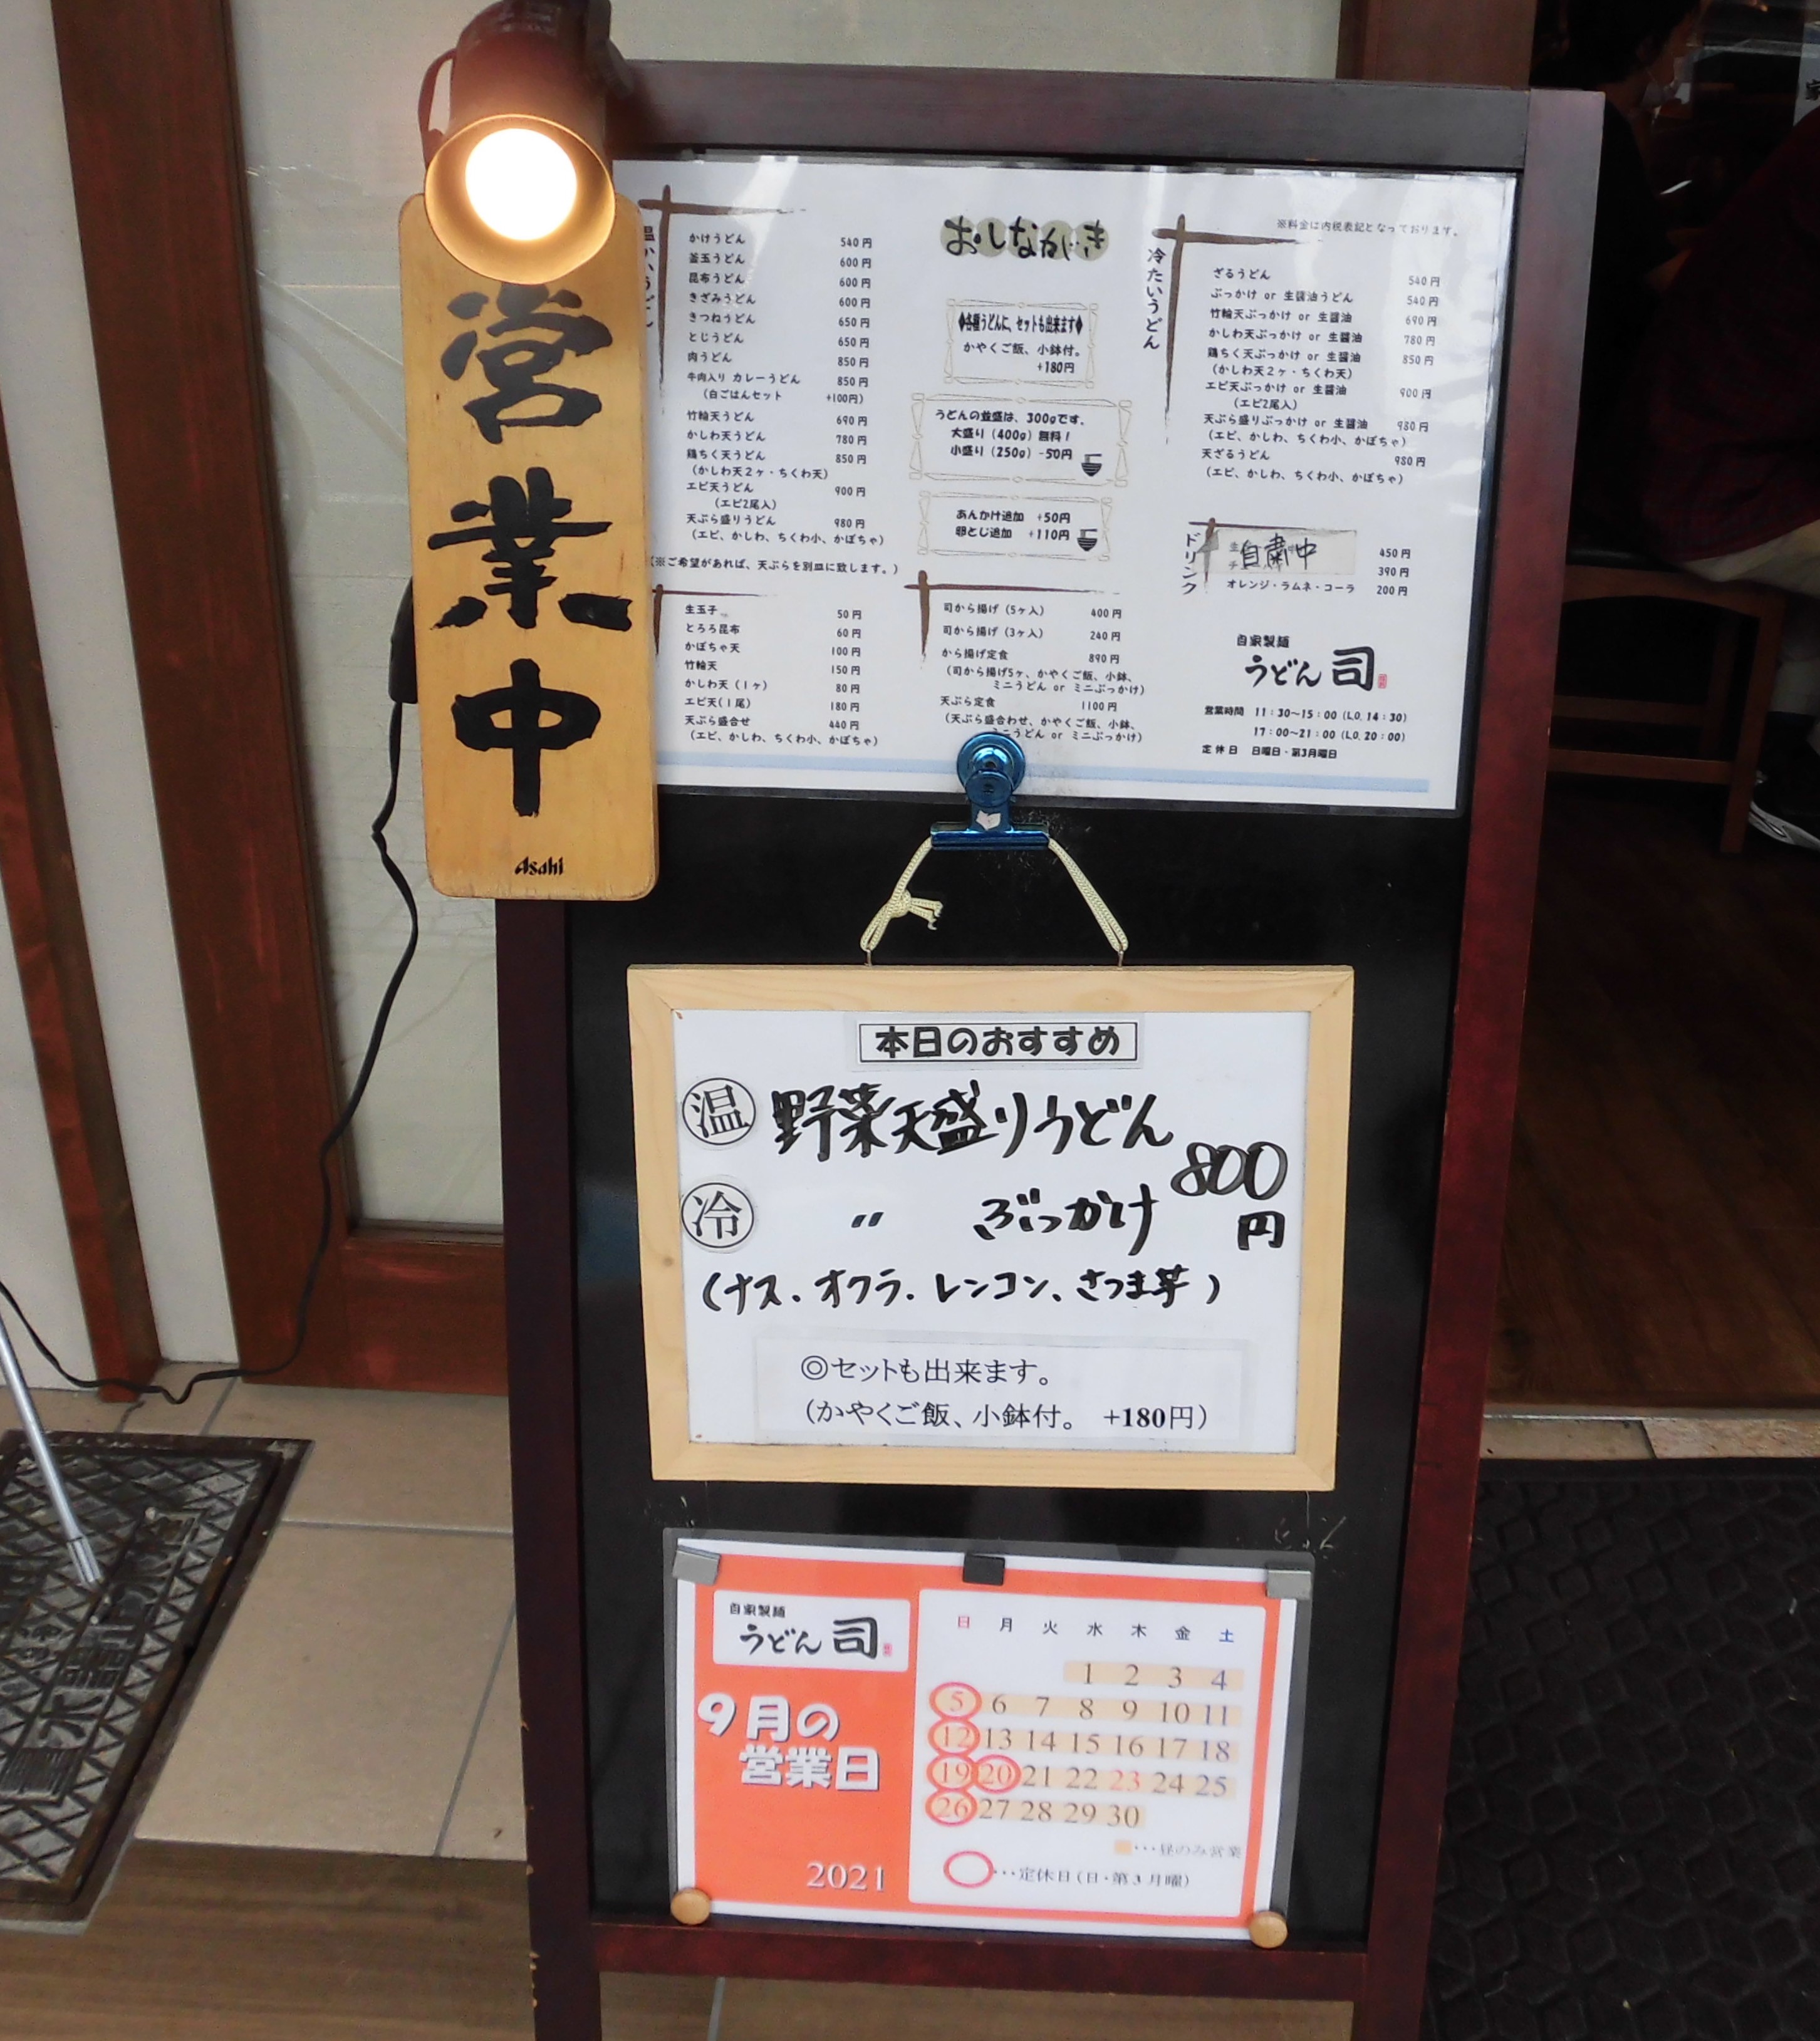 営業中
Asahi
おしながき
温かいうどん
かけうどん 540円
釜玉うどん 600円
昆布うどん 600円
きざみうどん 600円
きつねうどん 650円
とじうどん 650円
肉うどん 850円
牛肉入り カレーうどん 850円
(白ごはんセット +100円)
竹輪天うどん 690円
かしわ天うどん 780円
鶏ちく天うどん 850円
(かしわ天2ヶ・ちくわ天)
エビ天うどん 900円
(エビ2尾入)
天ぷら盛りうどん 980円
(エビ、かしわ、ちくわ小、かぼちゃ)
(※ご希望があれば、天ぷらを別皿に致します。)
生玉子 50円
とろろ昆布 60円
かぼちゃ天 100円
竹輪天 150円
かしわ天(1ヶ) 80円
エビ天(1尾) 180円
天ぷら盛合せ 440円
(エビ、かしわ、ちくわ小、かぼちゃ)
◆各種うどんに、セットも出来ます◆
かやくご飯、小鉢付。
+180円
うどんの並盛は、300gです。
大盛り(400g)無料!
小盛り(250g)-50円
あんかけ追加 +50円
卵とじ追加 +110円
司から揚げ(5ヶ入) 400円
司から揚げ(3ヶ入) 240円
から揚げ定食 890円
(司から揚げ5ヶ、かやくご飯、小鉢、
ミニうどん or ミニぶっかけ)
天ぷら定食 1100円
(天ぷら盛合わせ、かやくご飯、小鉢、
ミニうどん or ミニぶっかけ)
※料金は内税表記となっております。
冷たいうどん
ざるうどん 540円
ぶっかけ or 生醤油うどん 540円
竹輪天ぶっかけ or 生醤油 690円
かしわ天ぶっかけ or 生醤油 780円
鶏ちく天ぶっかけ or 生醤油 850円
(かしわ天2ヶ・ちくわ天)
エビ天ぶっかけ or 生醤油 900円
(エビ2尾入)
天ぷら盛りぶっかけ or 生醤油 980円
(エビ、かしわ、ちくわ小、かぼちゃ)
天ざるうどん 980円
(エビ、かしわ、ちくわ小、かぼちゃ)
ドリンク
自粛中
450円
390円
オレンジ・ラムネ・コーラ 200円
自家製麺
うどん 司
営業時間 11:30〜15:00 (L.O. 14:30)
17:00〜21:00 (L.O. 20:00)
定休日 日曜日・第3月曜日
本日のおすすめ
温 野菜天盛りうどん
冷 〃 ぶっかけ 800円
(ナス・オクラ・レンコン、さつま芋)
◎セットも出来ます。
(かやくご飯、小鉢付。 +180円)
自家製麺
うどん 司
9月の
営業日
2021
日 月 火 水 木 金 土
1 2 3 4
5 6 7 8 9 10 11
12 13 14 15 16 17 18
19 20 21 22 23 24 25
26 27 28 29 30
・・・昼のみ営業
・・・定休日(日・第3月曜)